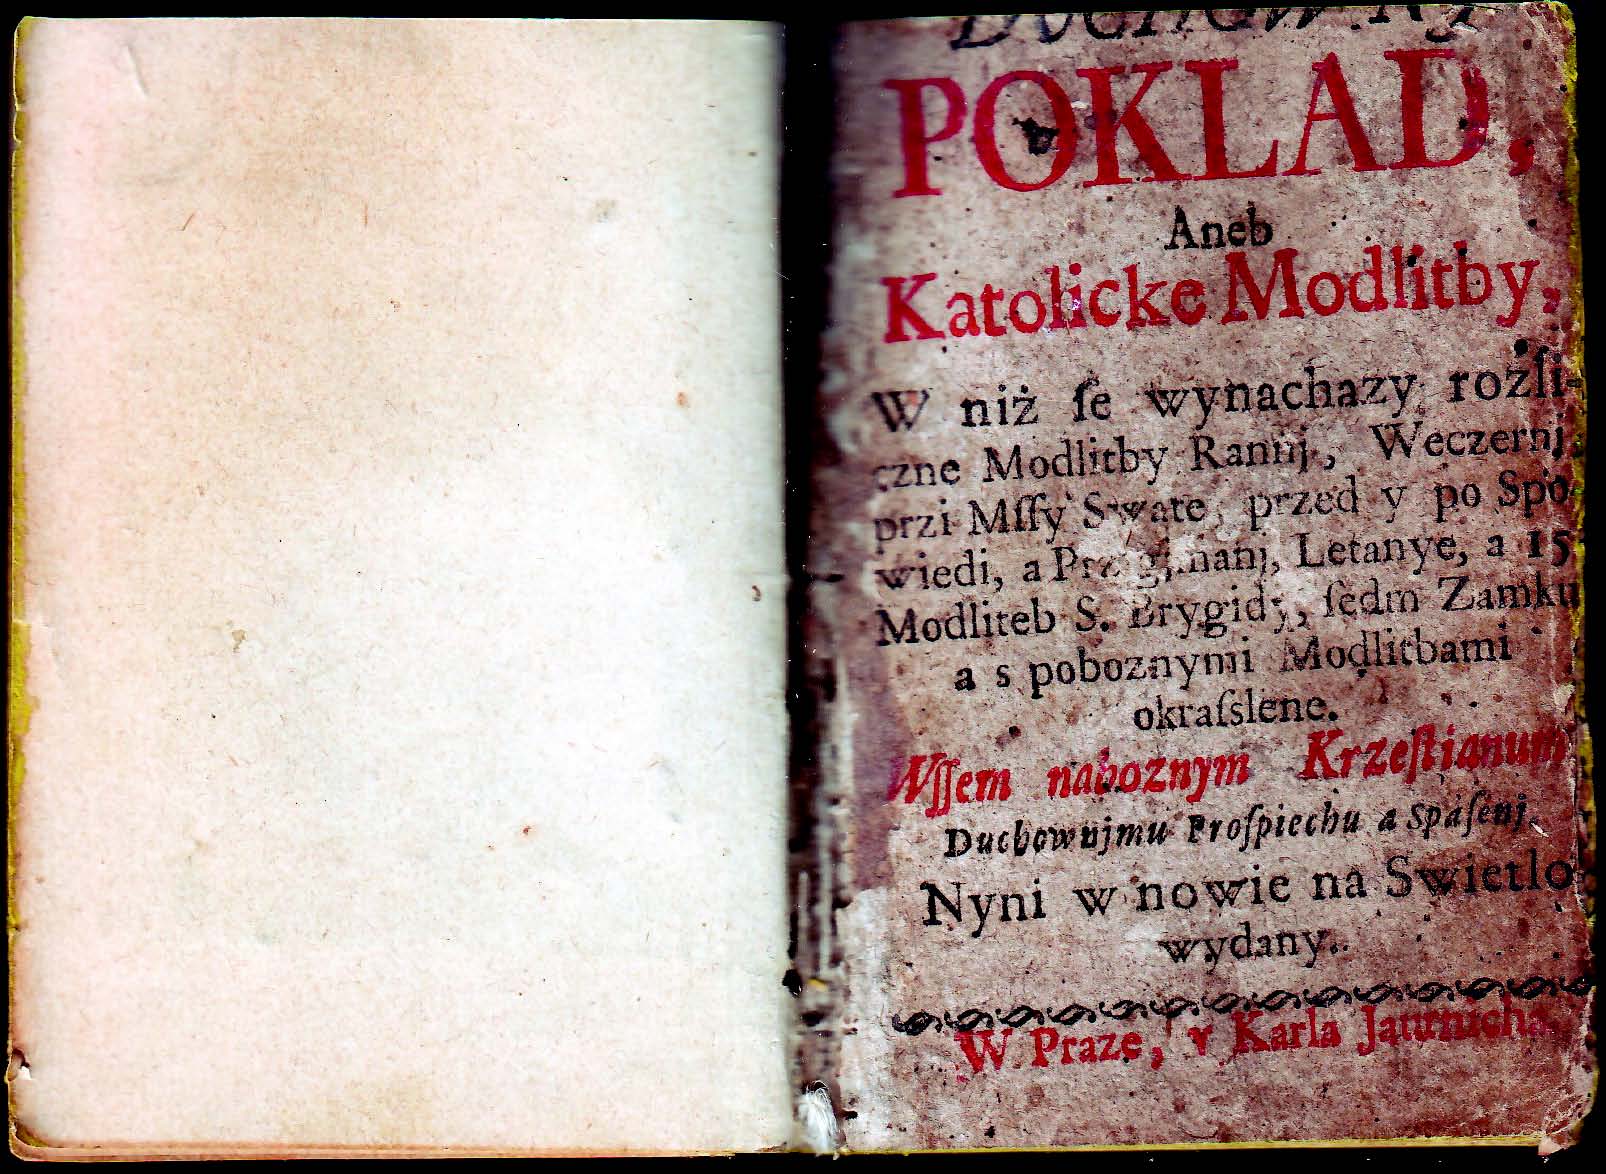 POKLAD,
Aneb
Katolicke Modlitby,
W niż ſe wynachazy rozli-
czne Modlitby Rannj, Weczernj,
przi Mſſy Swate, przed y po Spo-
wiedi, a Przigjmanj, Letanye, a 15
Modliteb S. Brygidy, ſedm Zamku
a s poboznymi Modlitbami
okraſslene.
Wſſem naboznym Krzeſtianum
Duchownjmu Proſpiechu a Spaſenj.
Nyni w nowie na Swietlo
wydany.
W Praze, v Karla